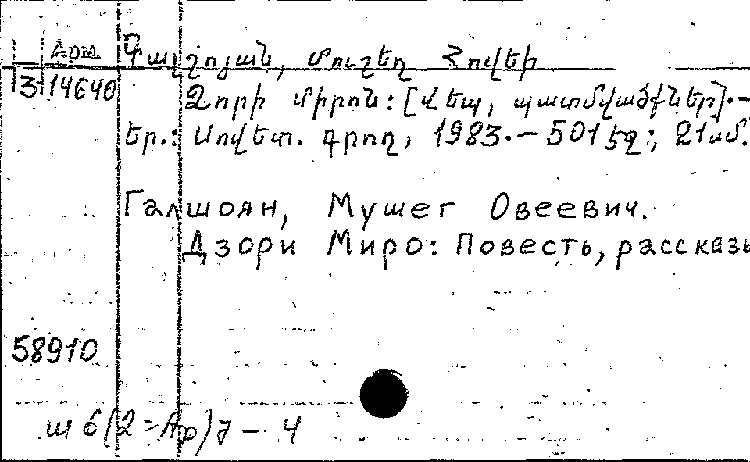 Арм Գալշոյան, Մուշեղ Հովեի
13-14640 Ձորի Միրոն: [Վեպ, պատմվածքներ].-
Եր.: Սովետ. գրող, 1983.- 501 էջ; 21 սմ.
Галшоян, Мушег Овеевич.
Дзори Миро: Повесть, рассказы
58910
ш6(2=Ар)7-4